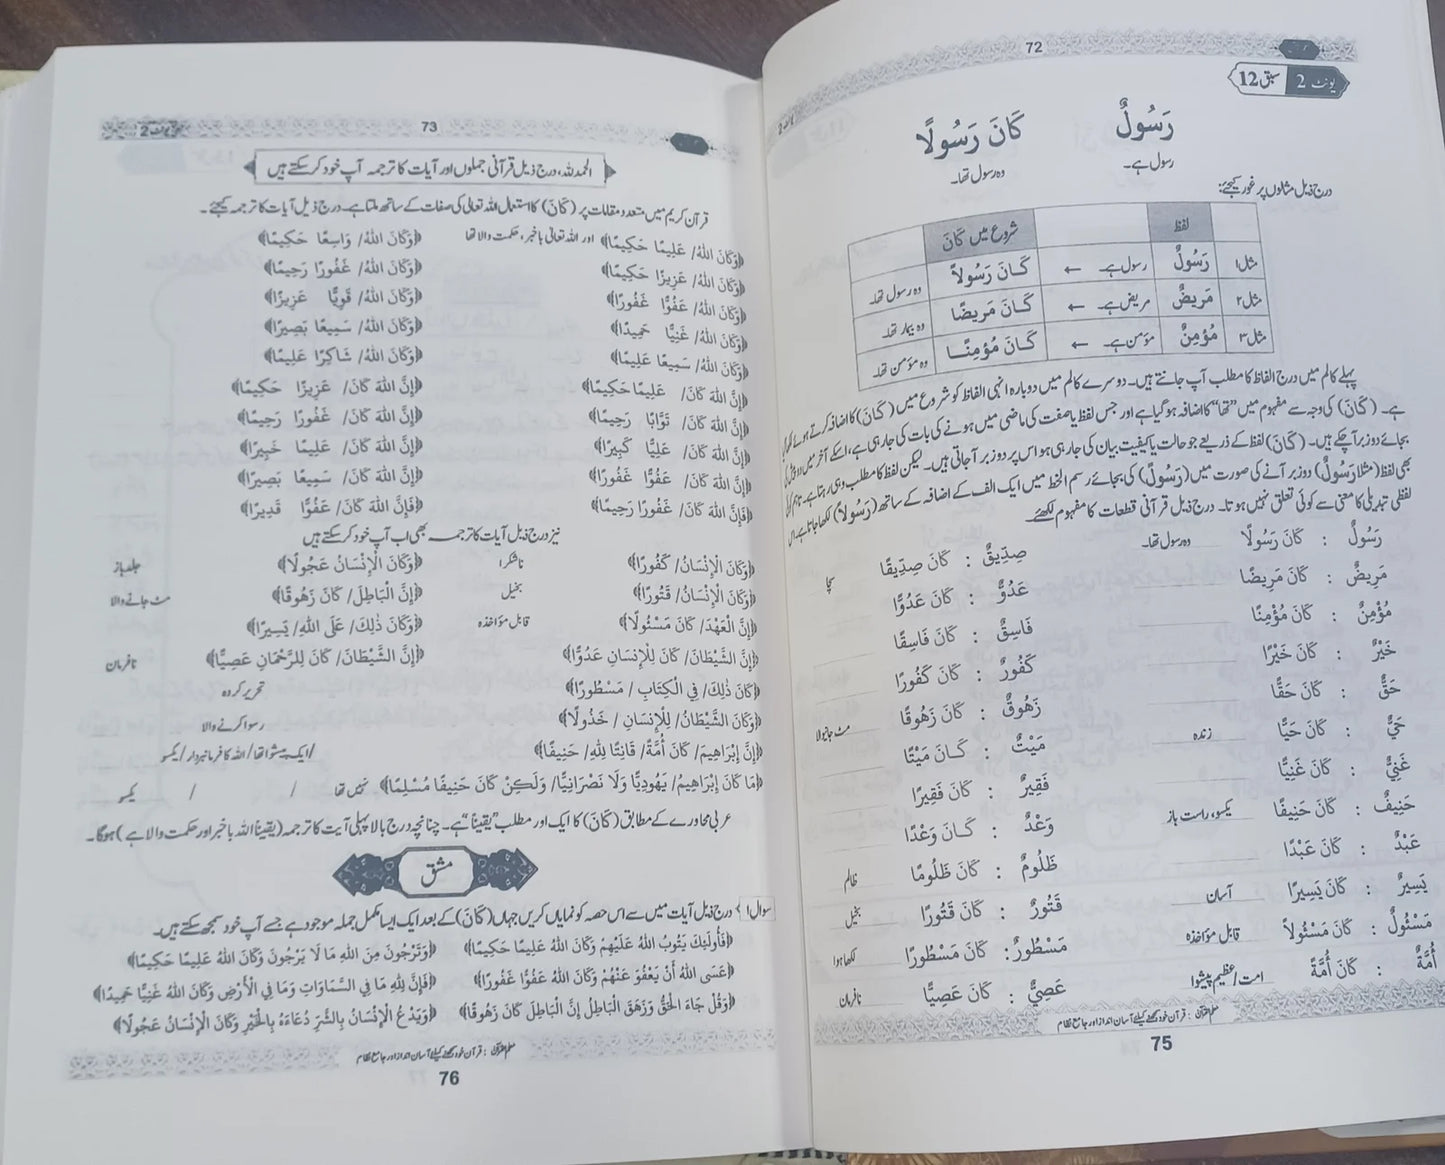 72
یونٹ 2 سبق 12
رَسُولٌ كَانَ رَسُولًا
رسول ہے۔ وہ رسول تھا۔
درج ذیل مثالوں پر غور کیجئے:
لفظ شروع میں كَانَ
مثال۱ رَسُولٌ رسول ہے۔ ← كَانَ رَسُولاً وہ رسول تھا۔
مثال۲ مَرِيضٌ مریض ہے۔ ← كَانَ مَرِيضًا وہ بیمار تھا۔
مثال۳ مُؤْمِنٌ مؤمن ہے۔ ← كَانَ مُؤْمِنًا وہ مؤمن تھا۔
پہلے کالم میں درج الفاظ کا مطلب آپ جانتے ہیں۔ دوسرے کالم میں دوبارہ انہی الفاظ کو شروع میں (كَانَ) کا اضافہ کرتے ہوئے لکھا گیا
ہے۔ (كَانَ) کی وجہ سے مفہوم میں "تھا" کا اضافہ ہو گیا ہے اور جس لفظ یا صفت کی ماضی میں ہونے کی بات کی جا رہی ہے، اسکے آخر میں دو پیش کی
بجائے دو زبر آچکے ہیں۔ (كَانَ) لفظ کے ذریعے جو حالت یا کیفیت بیان کی جا رہی ہو اس پر دو زبر آجاتی ہیں۔ لیکن لفظ کا مطلب وہی رہتا ہے۔ تاہم کوئی
بھی لفظ (مثلا رَسُولٌ) دو زبر آنے کی صورت میں (رَسُولً) کی بجائے رسم الخط میں ایک الف کے اضافہ کے ساتھ (رَسُولاً) لکھا جاتا ہے۔ اس
لفظی تبدیلی کا معنی سے کوئی تعلق نہیں ہوتا۔ درج ذیل قرآنی قطعات کا مفہوم لکھئے۔
رَسُولٌ : كَانَ رَسُولًا وہ رسول تھا۔ صِدِّيقٌ : كَانَ صِدِّيقًا سچا
مَرِيضٌ : كَانَ مَرِيضًا عَدُوٌّ : كَانَ عَدُوًّا
مُؤْمِنٌ : كَانَ مُؤْمِنًا فَاسِقٌ : كَانَ فَاسِقًا
خَيْرٌ : كَانَ خَيْرًا كَفُورٌ : كَانَ كَفُورًا
حَقٌّ : كَانَ حَقًّا زَهُوقٌ : كَانَ زَهُوقًا مٹ جانیوالا
حَيٌّ : كَانَ حَيًّا زندہ مَيْتٌ : كَانَ مَيْتًا
غَنِيٌّ : كَانَ غَنِيًّا فَقِيرٌ : كَانَ فَقِيرًا
حَنِيفٌ : كَانَ حَنِيفًا یکسو، راست باز وَعْدٌ : كَانَ وَعْدًا
عَبْدٌ : كَانَ عَبْدًا ظَلُومٌ : كَانَ ظَلُومًا ظالم
يَسِيرٌ : كَانَ يَسِيرًا آسان قَتُورٌ : كَانَ قَتُورًا بخیل
مَسْئُولٌ : كَانَ مَسْئُولاً قابل مؤاخذہ مَسْطُورٌ : كَانَ مَسْطُورًا لکھا ہوا
أُمَّةٌ : كَانَ أُمَّةً امت/عظیم پیشوا عَصِيٌّ : كَانَ عَصِيًّا نافرمان
معلم القرآن : قرآن خود سمجھنے کیلئے آسان انداز اور جامع نظام
75
73
یونٹ 2
الحمد للہ، درج ذیل قرآنی جملوں اور آیات کا ترجمہ آپ خود کر سکتے ہیں
قرآن کریم میں متعدد مقامات پر (كَانَ) کا استعمال اللہ تعالیٰ کی صفات کے ساتھ ملتا ہے۔ درج ذیل آیات کا ترجمہ کیجئے۔
﴿وَكَانَ اللهُ/ عَلِيمًا حَكِيمًا﴾ اور اللہ تعالیٰ باخبر، حکمت والا تھا ﴿وَكَانَ اللهُ/ وَاسِعًا حَكِيمًا﴾
﴿وَكَانَ اللهُ/ عَزِيزًا حَكِيمًا﴾ ﴿وَكَانَ اللهُ/ غَفُورًا رَحِيمًا﴾
﴿وَكَانَ اللهُ/ عَفُوًّا غَفُورًا﴾ ﴿وَكَانَ اللهُ/ قَوِيًّا عَزِيزًا﴾
﴿وَكَانَ اللهُ/ غَنِيًّا حَمِيدًا﴾ ﴿وَكَانَ اللهُ/ سَمِيعًا بَصِيرًا﴾
﴿وَكَانَ اللهُ/ سَمِيعًا عَلِيمًا﴾ ﴿وَكَانَ اللهُ/ شَاكِرًا عَلِيمًا﴾
﴿إِنَّ اللهَ كَانَ/ عَلِيمًا حَكِيمًا﴾ ﴿إِنَّ اللهَ كَانَ/ عَزِيزًا حَكِيمًا﴾
﴿إِنَّ اللهَ كَانَ/ تَوَّابًا رَحِيمًا﴾ ﴿إِنَّ اللهَ كَانَ/ غَفُورًا رَحِيمًا﴾
﴿إِنَّ اللهَ كَانَ/ عَلِيًّا كَبِيرًا﴾ ﴿إِنَّ اللهَ كَانَ/ عَلِيمًا خَبِيرًا﴾
﴿إِنَّ اللهَ كَانَ/ عَفُوًّا غَفُورًا﴾ ﴿إِنَّ اللهَ كَانَ/ سَمِيعًا بَصِيرًا﴾
﴿فَإِنَّ اللهَ كَانَ/ غَفُورًا رَحِيمًا﴾ ﴿فَإِنَّ اللهَ كَانَ/ عَفُوًّا قَدِيرًا﴾
نیز درج ذیل آیات کا ترجمہ بھی اب آپ خود کر سکتے ہیں
﴿وَكَانَ الْإِنْسَانُ/ كَفُورًا﴾ ناشکرا ﴿وَكَانَ الْإِنْسَانُ عَجُولًا﴾ جلد باز
﴿وَكَانَ الْإِنْسَانُ/ قَتُورًا﴾ بخیل ﴿إِنَّ الْبَاطِلَ/ كَانَ زَهُوقًا﴾ مٹ جانے والا
﴿إِنَّ الْعَهْدَ/ كَانَ مَسْئُولًا﴾ قابل مؤاخذہ ﴿وَكَانَ ذٰلِكَ/ عَلَى اللهِ/ يَسِيرًا﴾
﴿إِنَّ الشَّيْطَانَ/ كَانَ لِلْإِنسَانِ عَدُوًّا﴾ ﴿إِنَّ الشَّيْطَانَ/ كَانَ لِلرَّحْمَانِ عَصِيًّا﴾ نافرمان
﴿كَانَ ذٰلِكَ/ فِي الْكِتَابِ / مَسْطُورًا﴾ تحریر کردہ
﴿وَكَانَ الشَّيْطَانُ/ لِلْإِنسَانِ / خَذُولًا﴾ رسوا کرنے والا
﴿إِنَّ إِبْرَاهِيمَ/ كَانَ أُمَّةً/ قَانِتًا لِلهِ/ حَنِيفًا﴾ /ایک پیشوا تھا/ اللہ کا فرمانبردار / یکسو
﴿مَا كَانَ إِبْرَاهِيمُ/ يَهُودِيًّا وَلَا نَصْرَانِيًّا/ وَلَكِنْ كَانَ حَنِيفًا مُسْلِمًا﴾ نہیں تھا / / یکسو
عربی محاورے کے مطابق (كَانَ) کا ایک اور مطلب "یقیناً" ہے۔ چنانچہ درج بالا پہلی آیت کا ترجمہ (یقیناً اللہ باخبر اور حکمت والا ہے) ہوگا۔
مشق
سوال۱ درج ذیل آیات میں سے اس حصہ کو نمایاں کریں جہاں (كَانَ) کے بعد ایک ایسا مکمل جملہ موجود ہے جسے آپ خود سمجھ سکتے ہیں۔
﴿فَأُولَئِكَ يَتُوبُ اللهُ عَلَيْهِمْ وَكَانَ اللهُ عَلِيمًا حَكِيمًا﴾ ﴿وَتَرْجُونَ مِنَ اللهِ مَا لَا يَرْجُونَ وَكَانَ اللهُ عَلِيمًا حَكِيمًا﴾
﴿عَسَى اللهُ أَنْ يَعْفُوَ عَنْهُمْ وَكَانَ اللهُ عَفُوًّا غَفُورًا﴾ ﴿فَإِنَّ لِلهِ مَا فِي السَّمَاوَاتِ وَمَا فِي الْأَرْضِ وَكَانَ اللهُ غَنِيًّا حَمِيدًا﴾
﴿وَقُلْ جَاءَ الْحَقُّ وَزَهَقَ الْبَاطِلُ إِنَّ الْبَاطِلَ كَانَ زَهُوقًا﴾ ﴿وَيَدْعُ الْإِنْسَانُ بِالشَّرِّ دُعَاءَهُ بِالْخَيْرِ وَكَانَ الْإِنْسَانُ عَجُولًا﴾
معلم القرآن : قرآن خود سمجھنے کیلئے آسان انداز اور جامع نظام
76